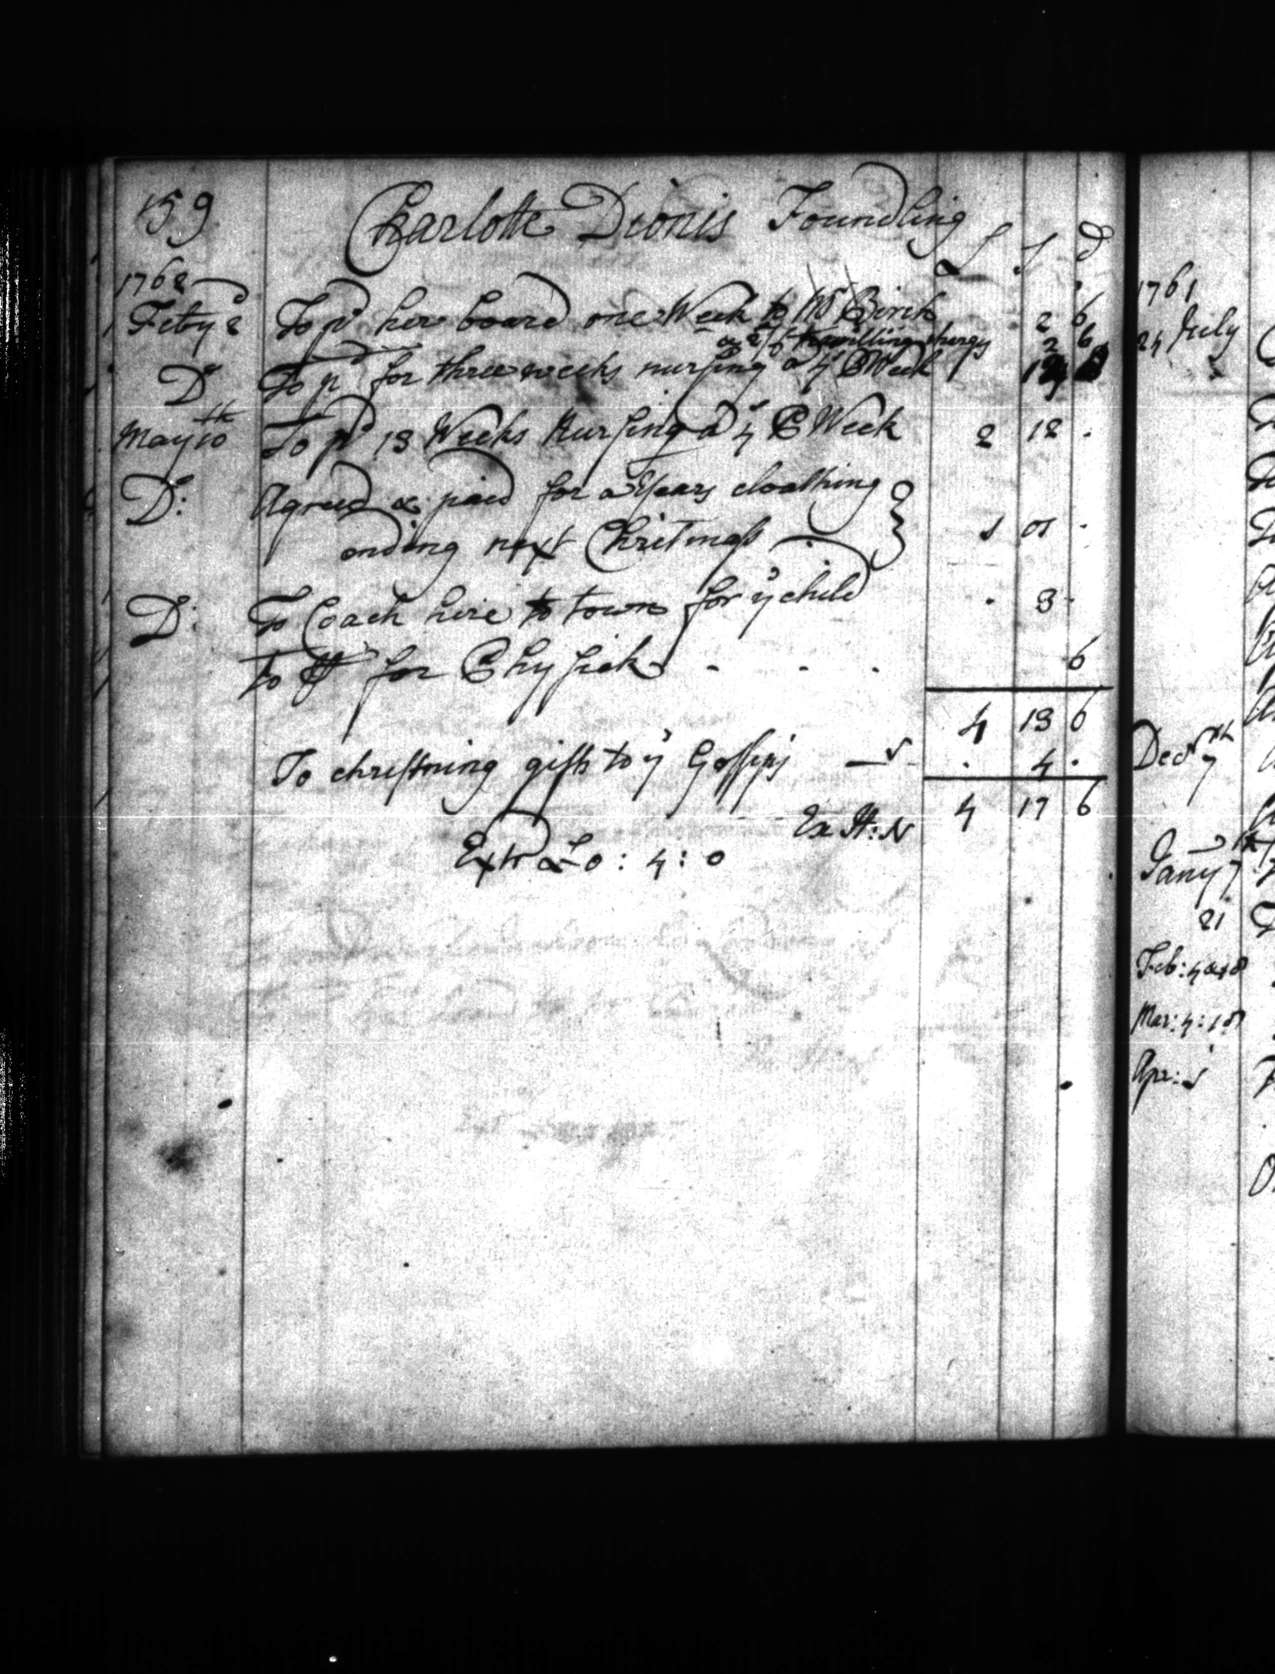 159 Charlotte Dionis Foundling
£ s d
1762
Febry 2 To pd her board one Week to Mr Birch 2 6
a 2/6 travilling charges 2 6
Do To pd for three weeks nursing a 4s P Week
May 10th To pd 13 Weeks Nursing a 4s P Week 2 12 .
Do: Agreed & paid for a Years cloathing
ending next Christmass 1 01 .
Do: To Coach hire to town for ye child . 3 .
To for Physick . . . 6
4 13 6
To christning gifts to ye Gossips . 4 .
4 17 6
Ex H: N
Extrd £0 : 4 : 0
1761
24 July
Decr 7th
Jany 7th
21
Feb: 4 & 18
Mar: 4: 18
Apr: 1